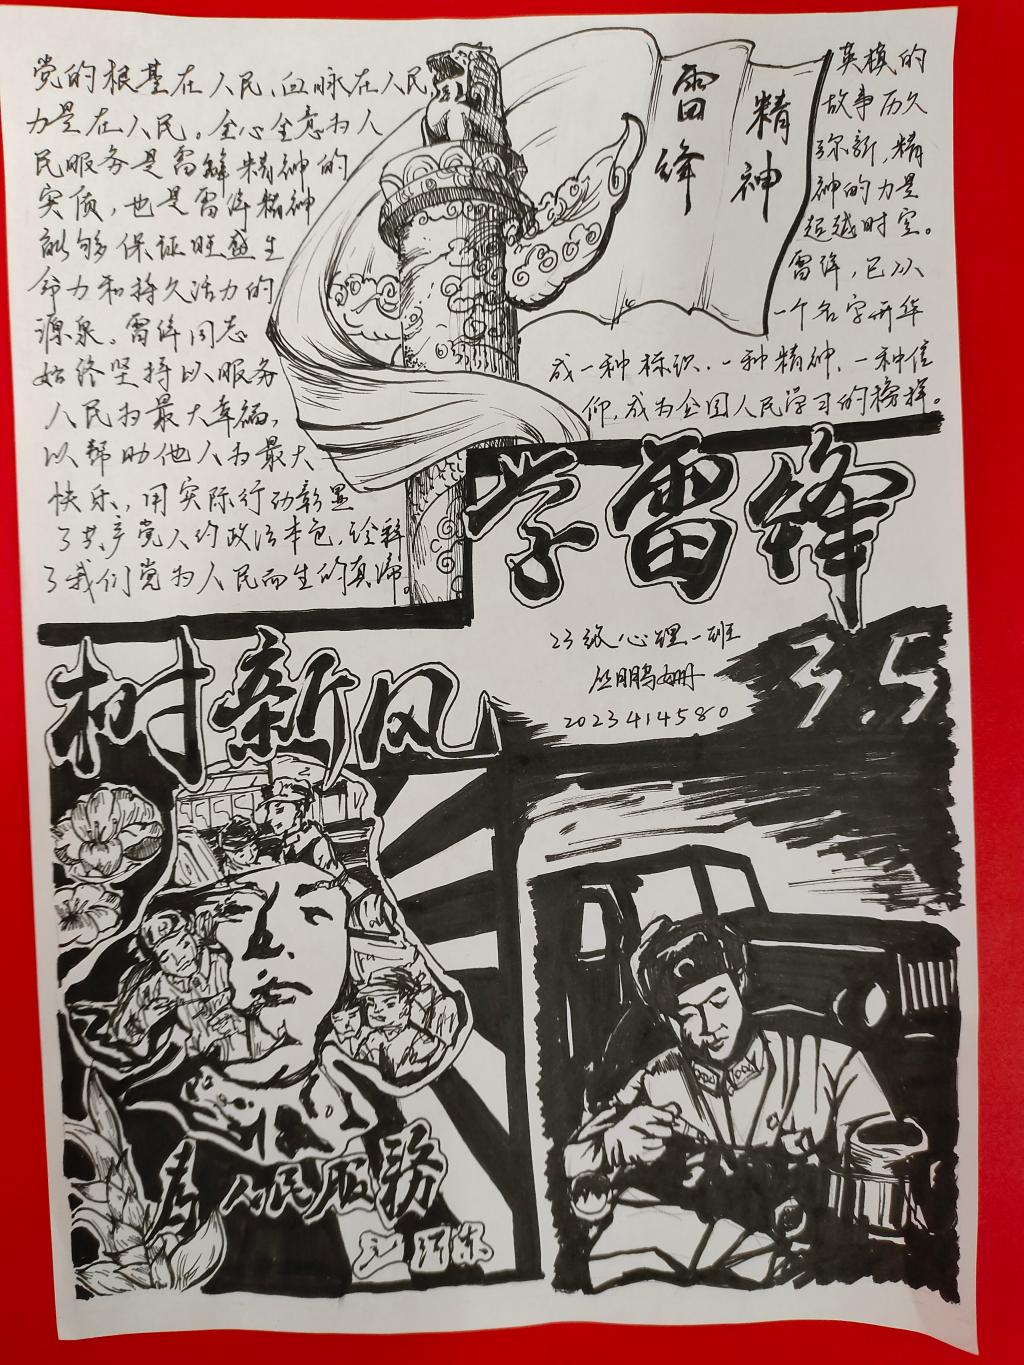 党的根基在人民、血脉在人民,
力量在人民。全心全意为人
民服务是雷锋精神的
实质,也是雷锋精神
能够保证旺盛生
命力和持久活力的
源泉。雷锋同志
始终坚持以服务
人民为最大幸福,
以帮助他人为最大
快乐,用实际行动彰显
了共产党人的政治本色,诠释
了我们党为人民而生的真谛。
雷锋
精神
英模的
故事历久
弥新,精
神的力量
超越时空。
雷锋,已从
一个名字升华
成一种标识、一种精神、一种信
仰,成为全国人民学习的榜样。
学雷锋
树新风
23级心理一班
丛鹏姗
2023414580
3.5
為人民服務
毛泽东